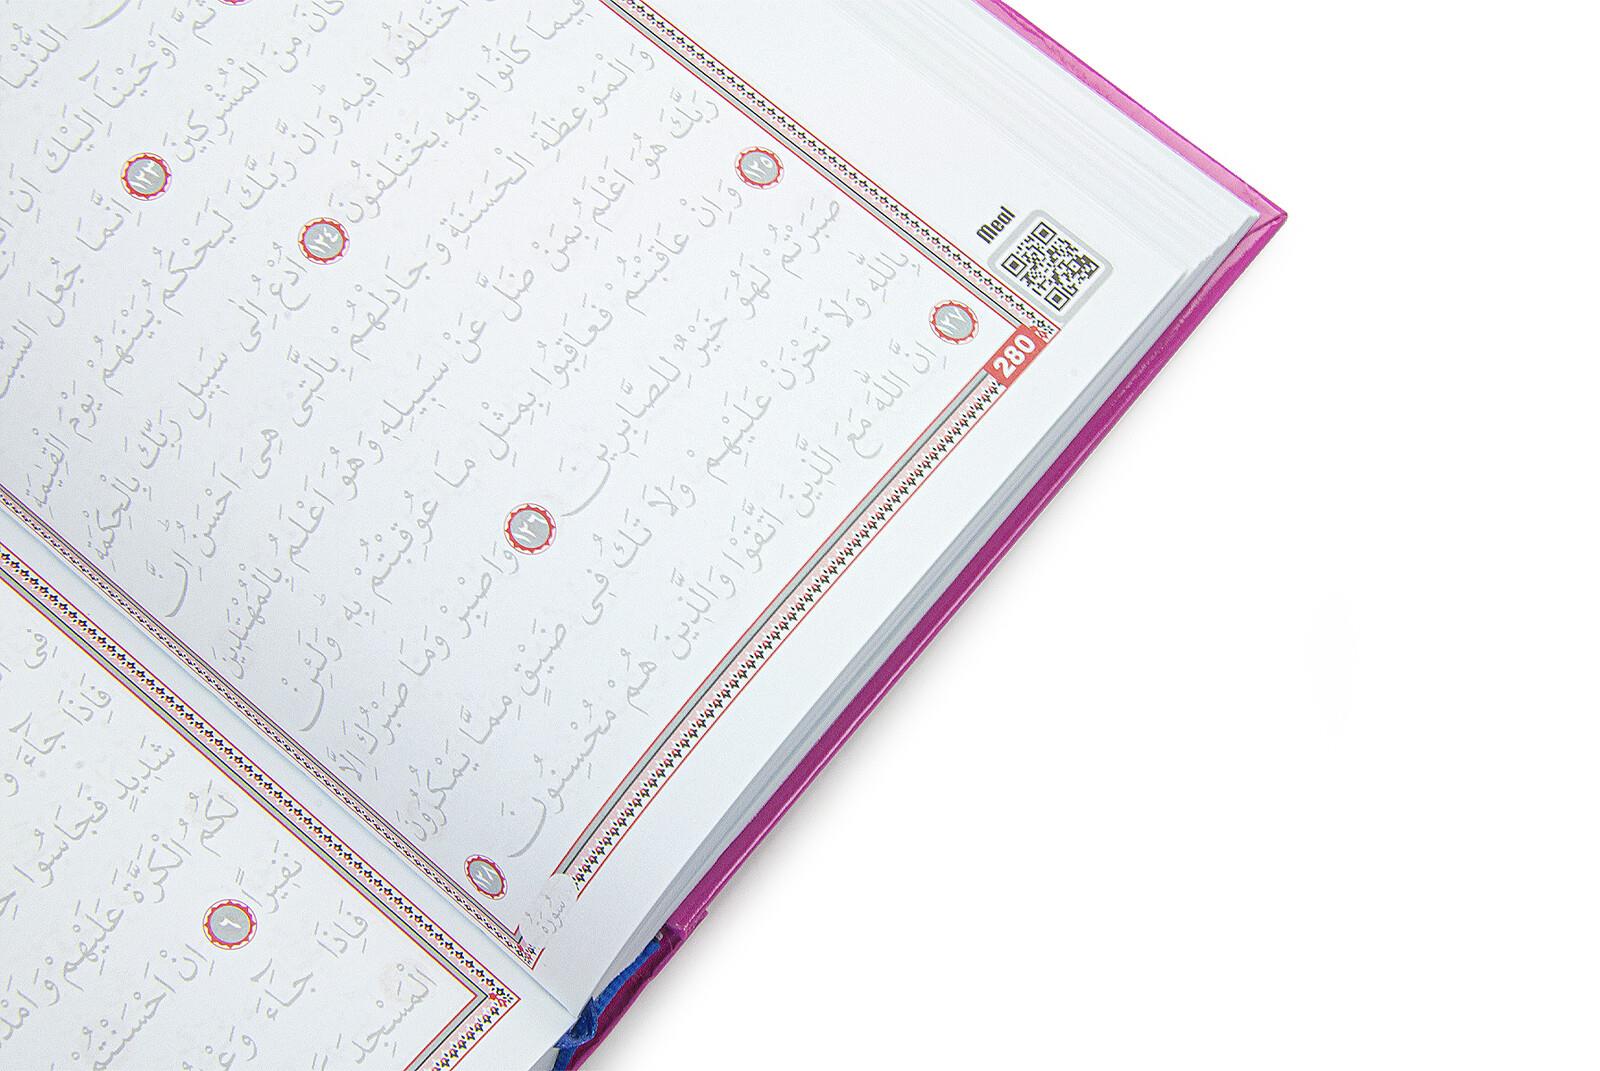 الدُّنْيَا
ثُمَّ اَوْحَيْنَٓا اِلَيْكَ اَنِ
كَانَ مِنَ الْمُشْرِكِينَ ١٢٣ اِنَّمَا جُعِلَ السَّبْتُ
اخْتَلَفُوا فِيهِ وَاِنَّ رَبَّكَ لَيَحْكُمُ بَيْنَهُمْ يَوْمَ الْقِيٰمَةِ
فِيمَا كَانُوا فِيهِ يَخْتَلِفُونَ ١٢٤ اُدْعُ اِلٰى سَبِيلِ رَبِّكَ بِالْحِكْمَةِ
وَالْمَوْعِظَةِ الْحَسَنَةِ وَجَادِلْهُمْ بِالَّتِى هِىَ اَحْسَنُ اِنَّ
رَبَّكَ هُوَ اَعْلَمُ بِمَنْ ضَلَّ عَنْ سَبِيلِهِ وَهُوَ اَعْلَمُ بِالْمُهْتَدِينَ
١٢٥ وَاِنْ عَاقَبْتُمْ فَعَاقِبُوا بِمِثْلِ مَا عُوقِبْتُمْ بِهِ وَلَئِنْ
صَبَرْتُمْ لَهُوَ خَيْرٌ لِلصَّابِرِينَ ١٢٦ وَاصْبِرْ وَمَا صَبْرُكَ اِلَّا
بِاللّٰهِ وَلَا تَحْزَنْ عَلَيْهِمْ وَلَا تَكُ فِى ضَيْقٍ مِمَّا يَمْكُرُونَ
١٢٧ اِنَّ اللّٰهَ مَعَ الَّذِينَ اتَّقَوْا وَالَّذِينَ هُمْ مُحْسِنُونَ ١٢٨
سُورَةُ
280
Meal
فِى
فَاِذَا جَٓاءَ
شَدِيدٍ فَجَاسُوا
لَكُمُ الْكَرَّةَ عَلَيْهِمْ وَاَمْدَ
نَفِيرًا ٦ اِنْ اَحْسَنْتُمْ
فَاِذَا جَٓاءَ وَعْدُ
الْمَسْجِدَ